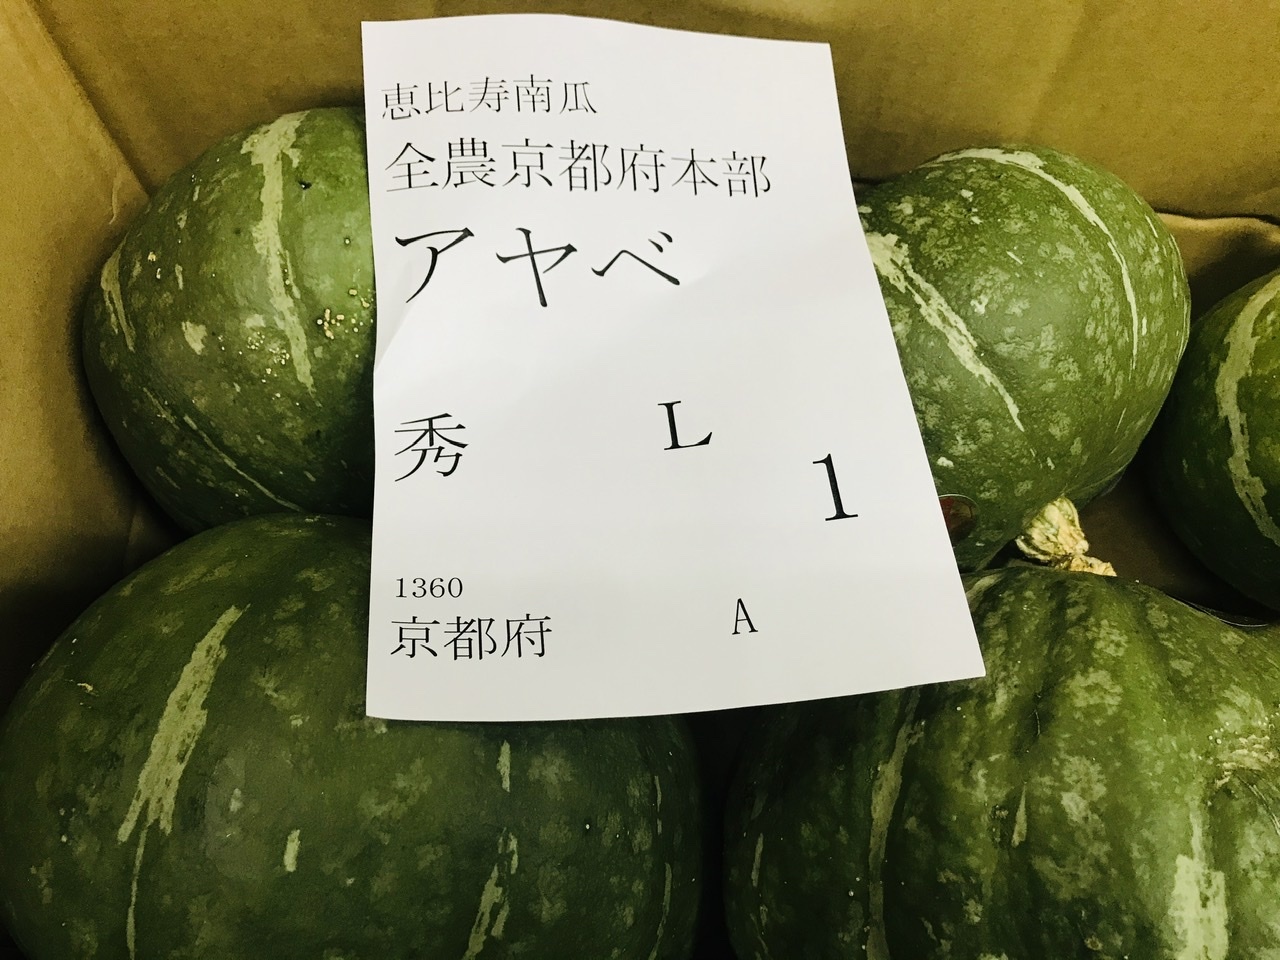 恵比寿南瓜
全農京都府本部
アヤベ
秀 L
1
1360
京都府 A